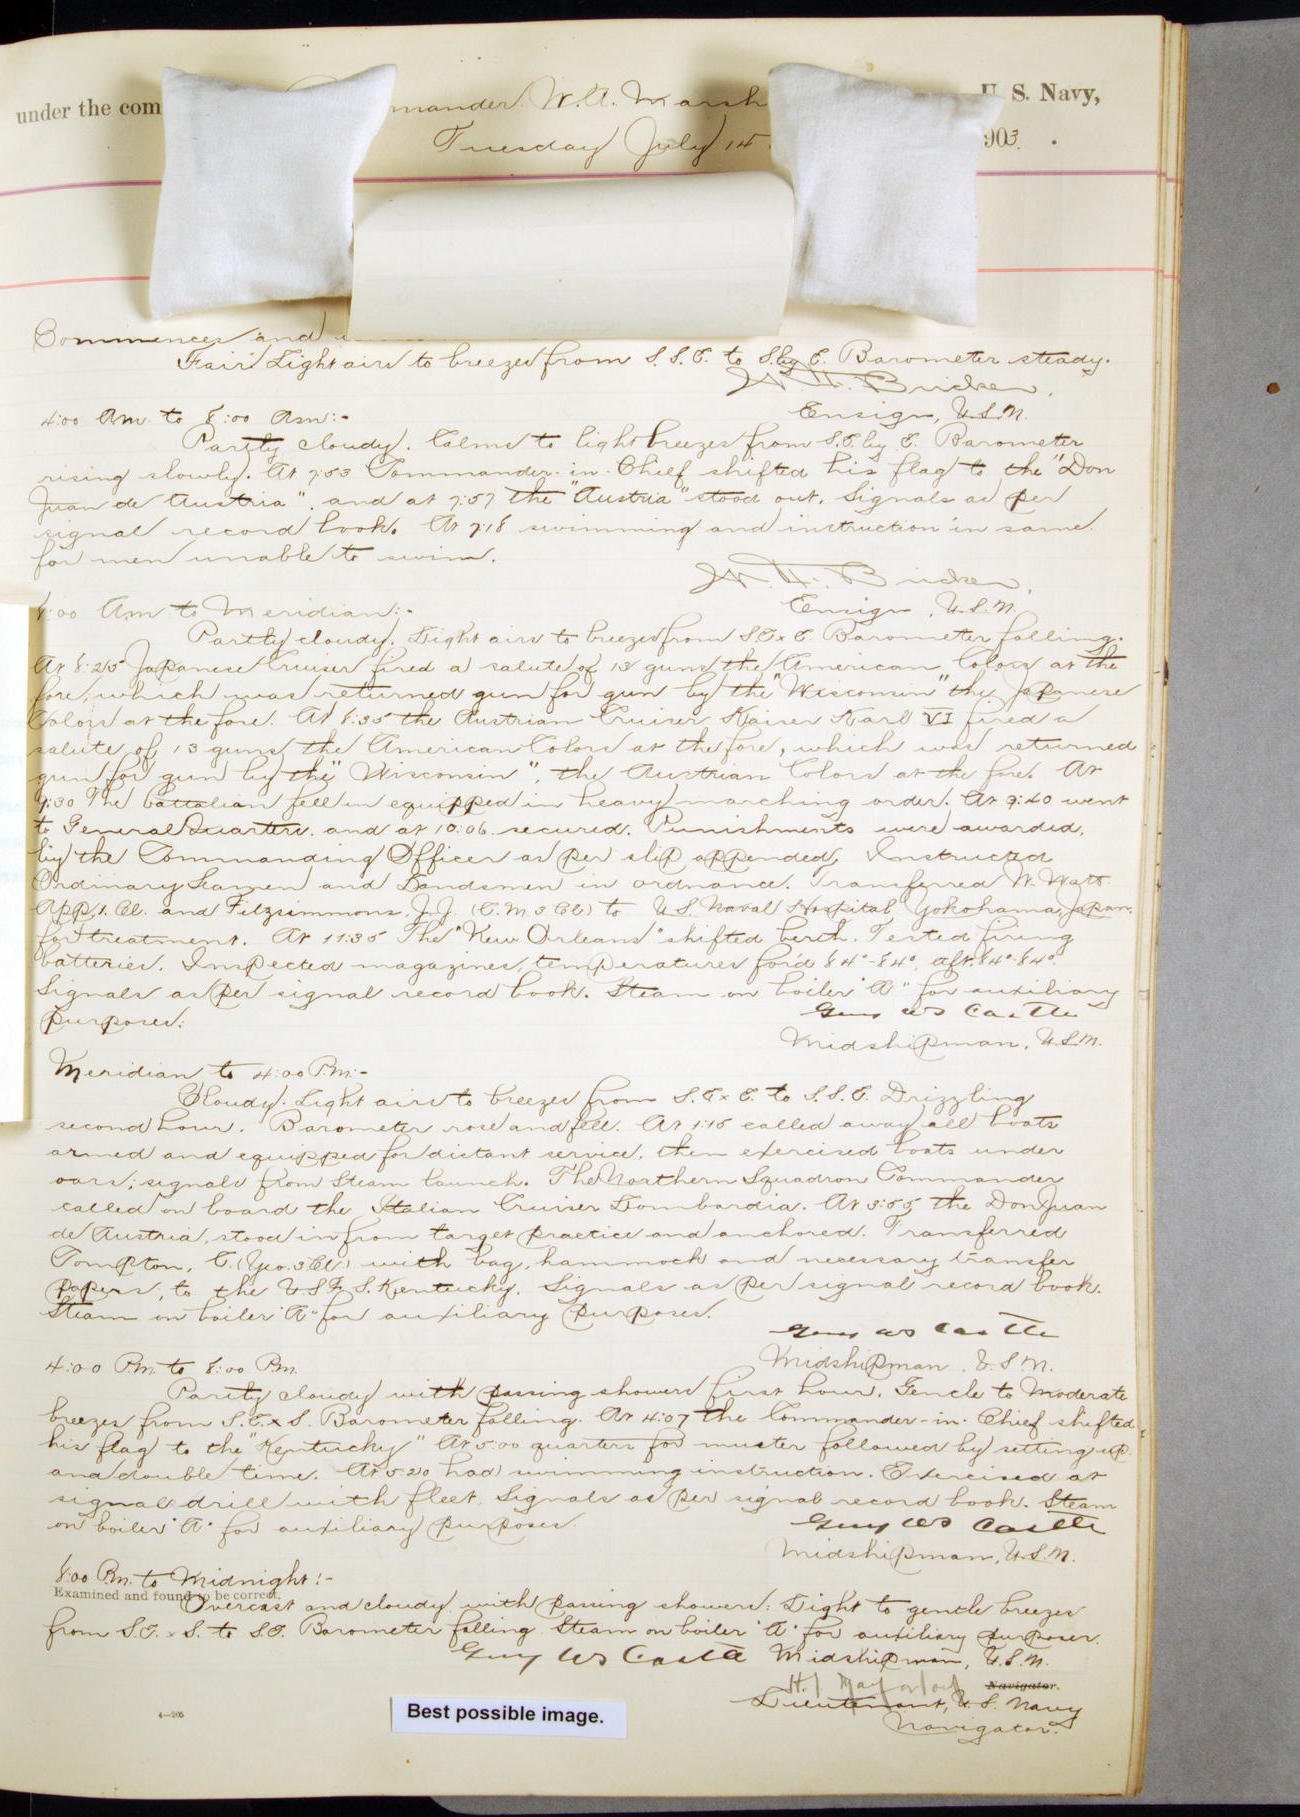 under the com mander W. A. Marsh U. S. Navy,
Tuesday July 14 903.
Commences and
Fair. Light airs to breezes from S.S.E. to S. by E. Barometer steady.
Ensign, U.S.N.
4:00 Am. to 8:00 Am:-
Partly cloudy. Calms to light breezes from S.E. by E. Barometer
rising slowly. At 7:53 Commander-in-Chief shifted his flag to the "Don
Juan de Austria", and at 7:57 the "Austria" stood out. Signals as per
signal record book. At 7:18 swimming and instruction in same
for men unable to swim.
Ensign, U.S.N.
8:00 Am to Meridian:-
Partly cloudy. Light airs to breezes from S.E x E. Barometer falling.
At 8:25 Japanese Cruiser fired a salute of 13 guns the American Colors at the
fore, which was returned gun for gun by the "Wisconsin" the Japanese
Colors at the fore. At 8:35 the Austrian Cruiser Kaiser Karl VI fired a
salute of 13 guns, the American Colors at the fore, which was returned
gun for gun by the "Wisconsin", the Austrian Colors at the fore. At
9:30 The battalian fell in equipped in heavy marching order. At 9:40 went
to General Quarters. and at 10:06 secured. Punishments were awarded,
by the Commanding Officer as per slip appended. Instructed
Ordinary Seamen and Landsmen in ordnance. Transferred W. Watt
App. 1. Cl. and Fitzsimmons, J.J. (C.M. 3 Cl) to U.S. Naval Hospital Yokohama, Japan.
for treatment. At 11:35 The "New Orleans" shifted berth. Tested firing
batteries. Inspected magazines, temperatures for'd 84°-84°, aft 84°-84°.
Signals as per signal record book. Steam on boiler "A" for auxiliary
purposes.
Guy WS Castle
Midshipman, U.S.N.
Meridian to 4:00 P.M:-
Cloudy. Light airs to breezes from S.E x E. to S.S.E. Drizzling
second hour. Barometer rose and fell. At 1:15 called away all boats
armed and equipped for distant service, then exercised boats under
oars; signals from Steam launch. The Northern Squadron Commander
called on board the Italian Cruiser Lombardia. At 3:55 the Don Juan
de Austria, stood in from target practice and anchored. Transferred
Tompton, C. (Yeo. 3 Cl) with bag, hammock and necessary transfer
papers, to the U.S.F.S. Kentucky. Signals as per signal record book.
Steam on boiler "A" for auxiliary purposes.
Guy WS Castle
Midshipman, U.S.N.
4:00 P.M. to 8:00 P.M.
Partly cloudy with passing showers first hour. Gentle to Moderate
breezes from S.E. x S. Barometer falling. At 4:07 the Commander-in-Chief shifted
his flag to the "Kentucky" At 5:00 quarters for muster followed by setting up
and double time. At 5:20 had swimming instruction. Exercised at
signal drill with fleet. Signals as per signal record book. Steam
on boiler "A" for auxiliary purposes.
Guy WS Castle
Midshipman, U.S.N.
8:00 P.M. to Midnight:-
Examined and found to be correct.
Overcast and cloudy with passing showers. Light to gentle breezes
from S.E. x S. to S.E. Barometer falling. Steam on boiler "A" for auxiliary purposes.
Guy WS Castle Midshipman, U.S.N.
Navigator.
Lieutenant, U.S. Navy
Navigator.
4—205
Best possible image.